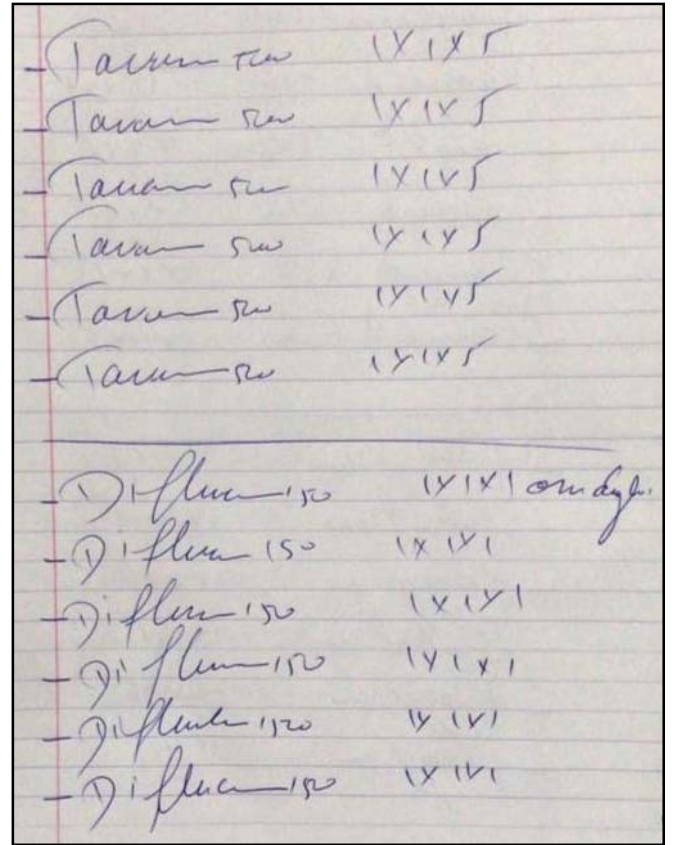 - Tavan 500 1x1x5
- Tavan 500 1x1x5
- Tavan 500 1x1x5
- Tavan 500 1x1x5
- Tavan 500 1x1x5
- Tavan 500 1x1x5
- Diflucan 150 1x1x1
- Diflucan 150 1x1x1
- Diflucan 150 1x1x1
- Diflucan 150 1x1x1
- Diflucan 150 1x1x1
- Diflucan 150 1x1x1